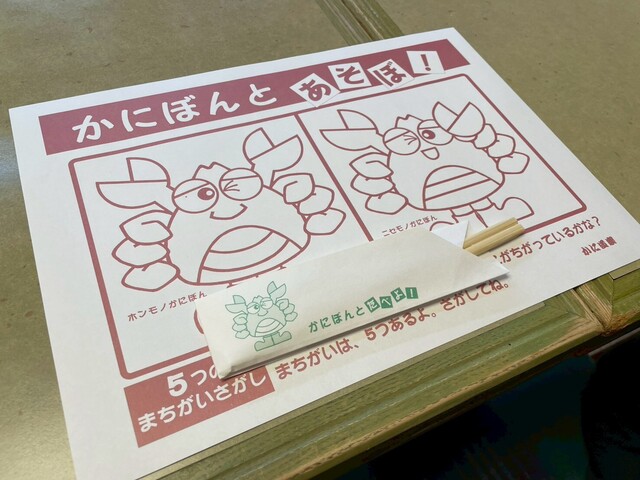 かにぼんと あそぼ!
ホンモノかにぼん
ニセモノかにぼん
がちがっているかな?
かに道楽
かにぼんと たべよ!
5つの
まちがいさがし
まちがいは、5つあるよ。さがしてね。